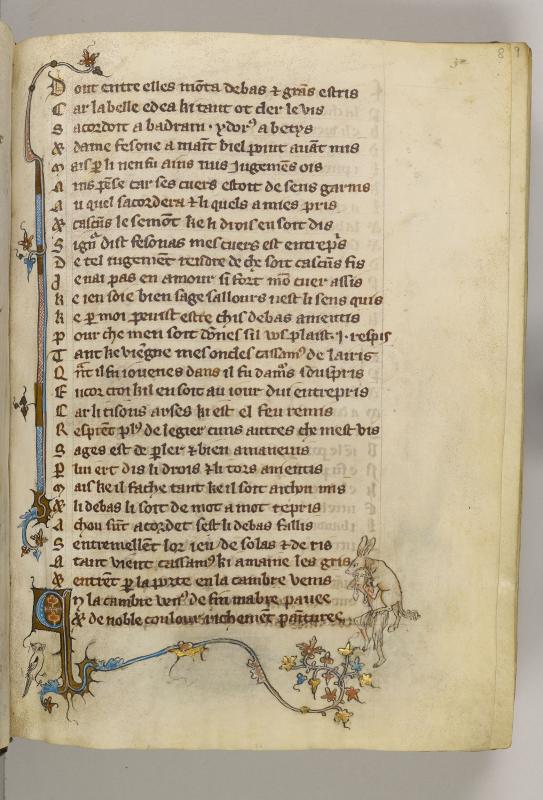 Dont entre elles mōta debas & grās estris
Car la belle edea ki tant ot cler le vis
Sacordoit a badrain · ydorꝰ a betys
& dame fesone a mait biel point auāt mis
mais ꝑ li nen fu ains nus Jugemēs ois
Ains pēse car ses cuers estoit de sens garnis
Au quel sacordera & li quels a mies pris
& cascūs le semōt ke li drois en soit dis
Signꝰ dist fesonas mes cuers est entrepͥs
De tel iugement rendre de che soit cascūs fis
Je nai pas en amour si fort mō cuer assis
Ke ien soie bien sage sallours nest li sens quis
Ke ꝑ moi peuist estre chis debas amentis
Pour che men soit dōnes sil vꝰ plaist · i · respis
Tant ke viēgne mes oncles cassamꝰ de lairis
Qn̄t il fu iouenes dans il fu damꝰs souspris
Encor croi kil en soit au iour dui entrepris
Car li tisons arses ki est el feu remis
Resprent plꝰ de legier cuns autres che mest vis
Sages est de ꝑler & bien amaneuis
ꝑ lui ert dis li drois & li tors amentis
mais ke il sache tant ke il soit aichou mis
& li debas li soit de mot a mot repris
A chou sūt acordet sest li debas fallis
Sentremellēt lor ieu de solas & de ris
Atant vient cassamꝰ ki amaine les gris
& entrēt ꝑ la porte en la cambre venis
En la cambre venꝰ de fin mabre pauee
& de noble coulour richemēt painturee